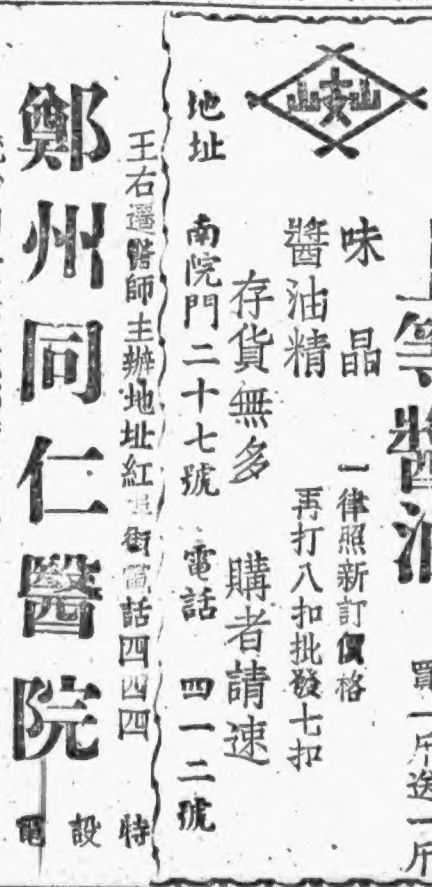 等醬油
買一斤送一斤
味晶
一律照新訂價格
醬油精
再打八扣批發七扣
存貨無多
購者請速
地址
南院門二十七號
電話
四一二號
王右遷醫師主辦地址紅 街電話四四四
鄭州同仁醫院
特設電